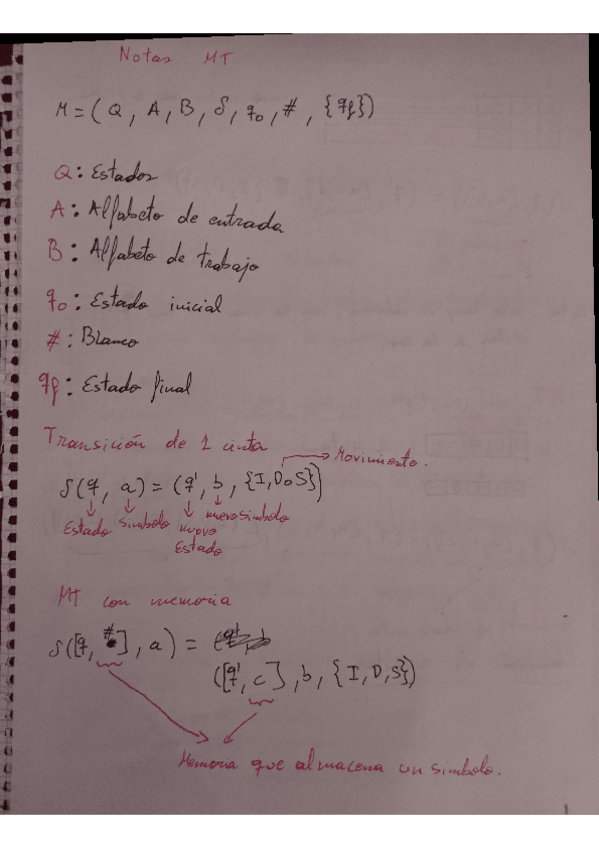 Notas MT
M = (Q, A, B, δ, q₀, #, {qf})
Q: Estados
A: Alfabeto de entrada
B: Alfabeto de trabajo
q₀: Estado inicial
#: Blanco
qf: Estado final
Transición de 1 cinta
→ Movimiento.
δ(q, a) = (q', b, {I, D o S})
Estado Simbolo nuevo Estado nuevo simbolo
MT con memoria
δ([q, #], a) =
([q', c], b, {I, D, S})
Memoria que almacena un simbolo.